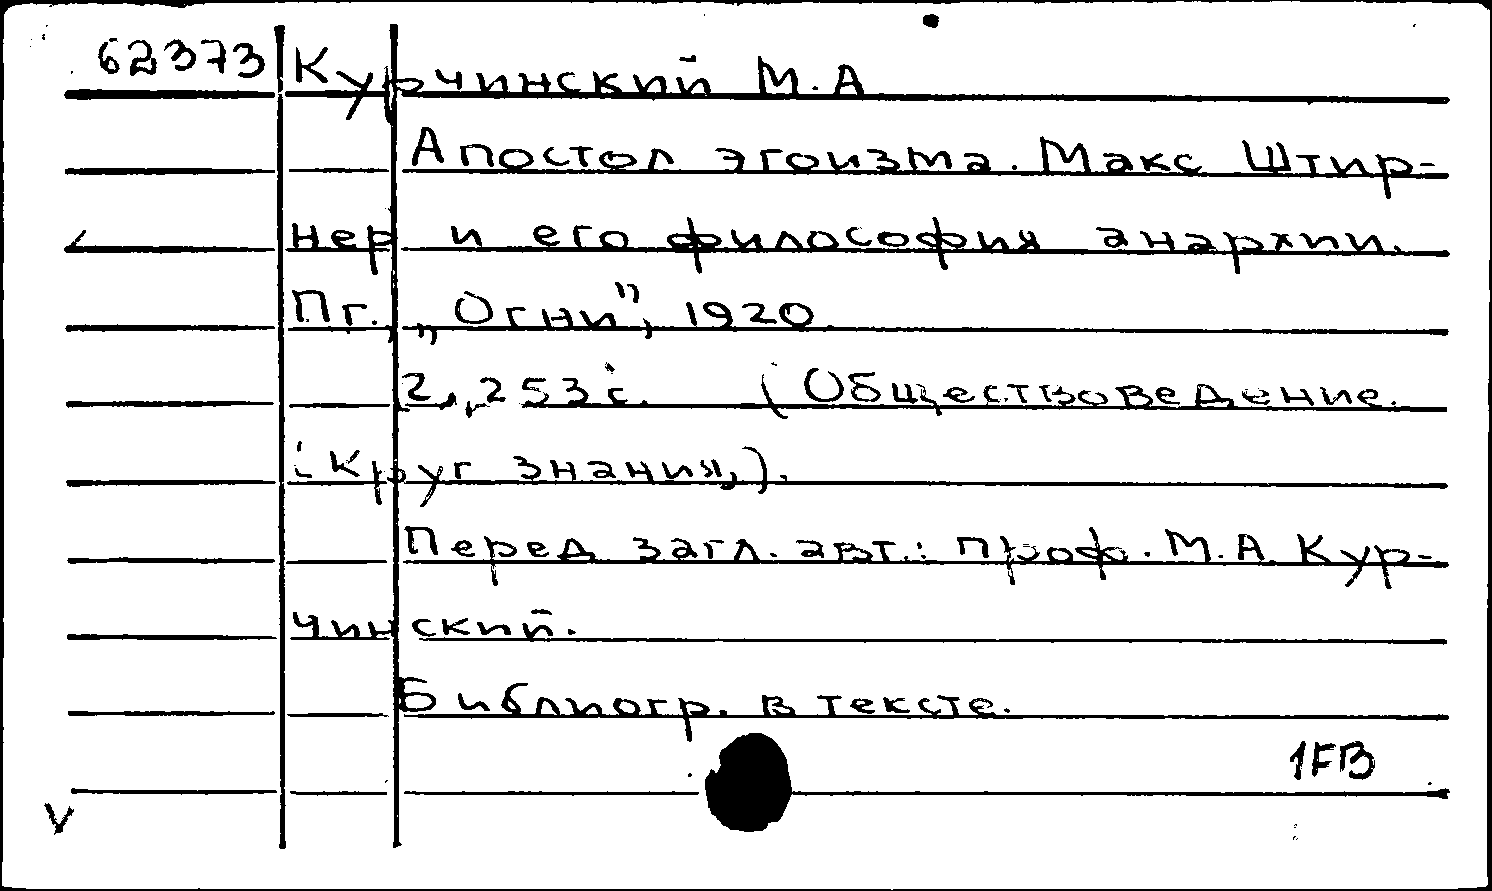 62373 Курчинский М.А
Апостол эгоизма. Макс Штир-
нер и его философия анархии.
Пг., „Огни", 1920
2, 253 с. (Обществоведение.
(Круг знания,).
Перед загл. авт.: проф. М.А. Кур-
чинский.
Библиогр. в тексте.
1FB
V